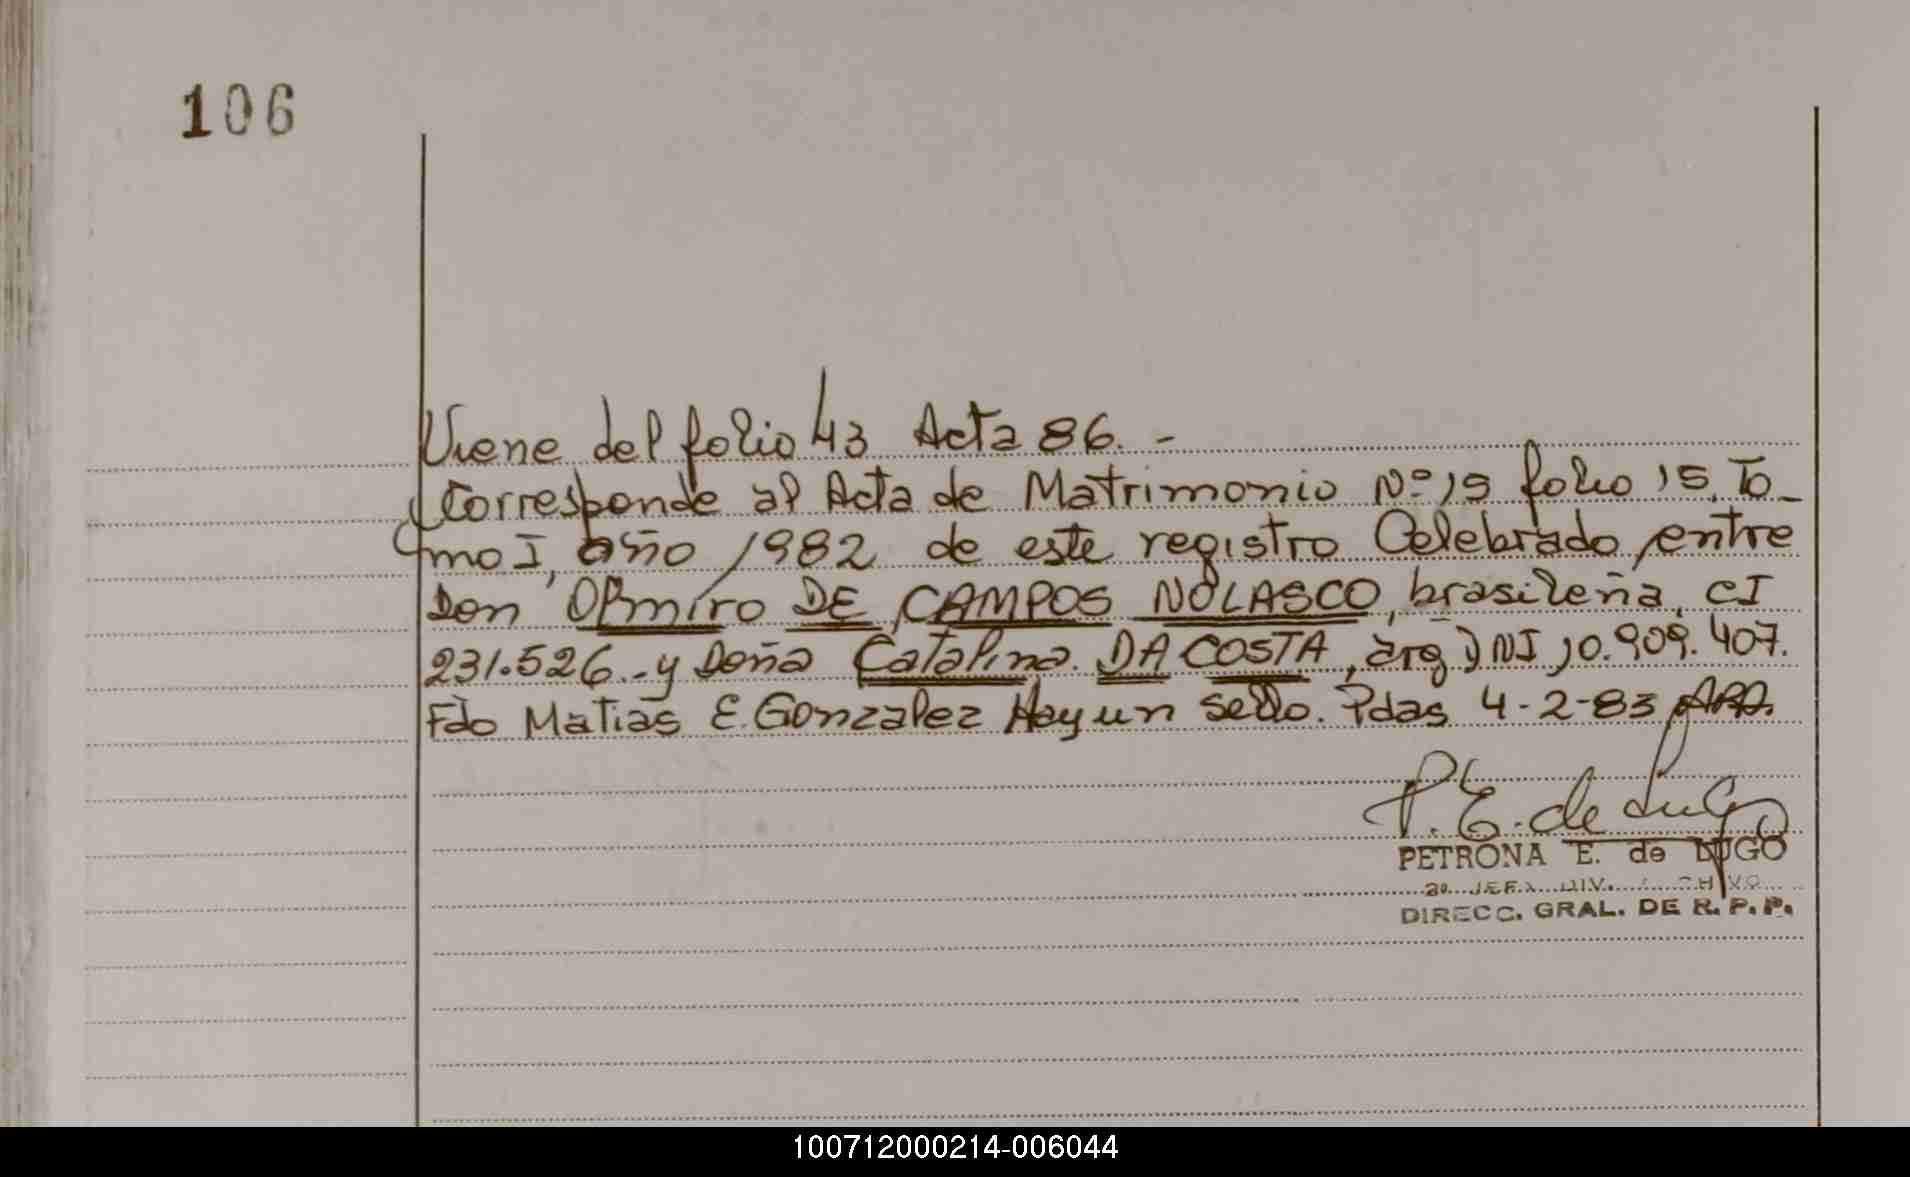 106
Viene del folio 43 Acta 86. -
Corresponde al Acta de Matrimonio Nº 19 folio 15, To-
mo I, año 1982 de este registro Celebrado, entre
Don Olmiro DE CAMPOS NOLASCO, brasileña, CI
231.526.- y Doña Catalina DA COSTA, arg DNI 10.909.407.
Fdo Matias E. Gonzalez Hay un sello. Pdas 4-2-83
P. E. de Lugo
PETRONA E. de LUGO
2º JEFA DIV.
DIRECC. GRAL. DE R. P. P.
100712000214-006044